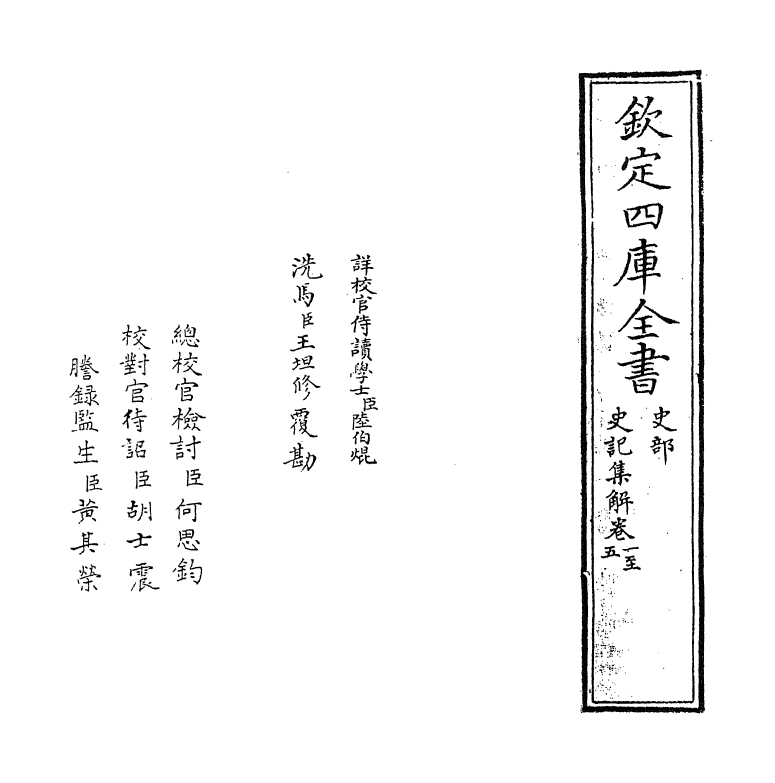 欽定四庫全書
史部
史記集解卷一至五
詳校官侍讀學士臣陸伯焜
洗馬臣王坦修覆勘
總校官檢討臣何思鈞
校對官待詔臣胡士震
謄錄監生臣黃其榮